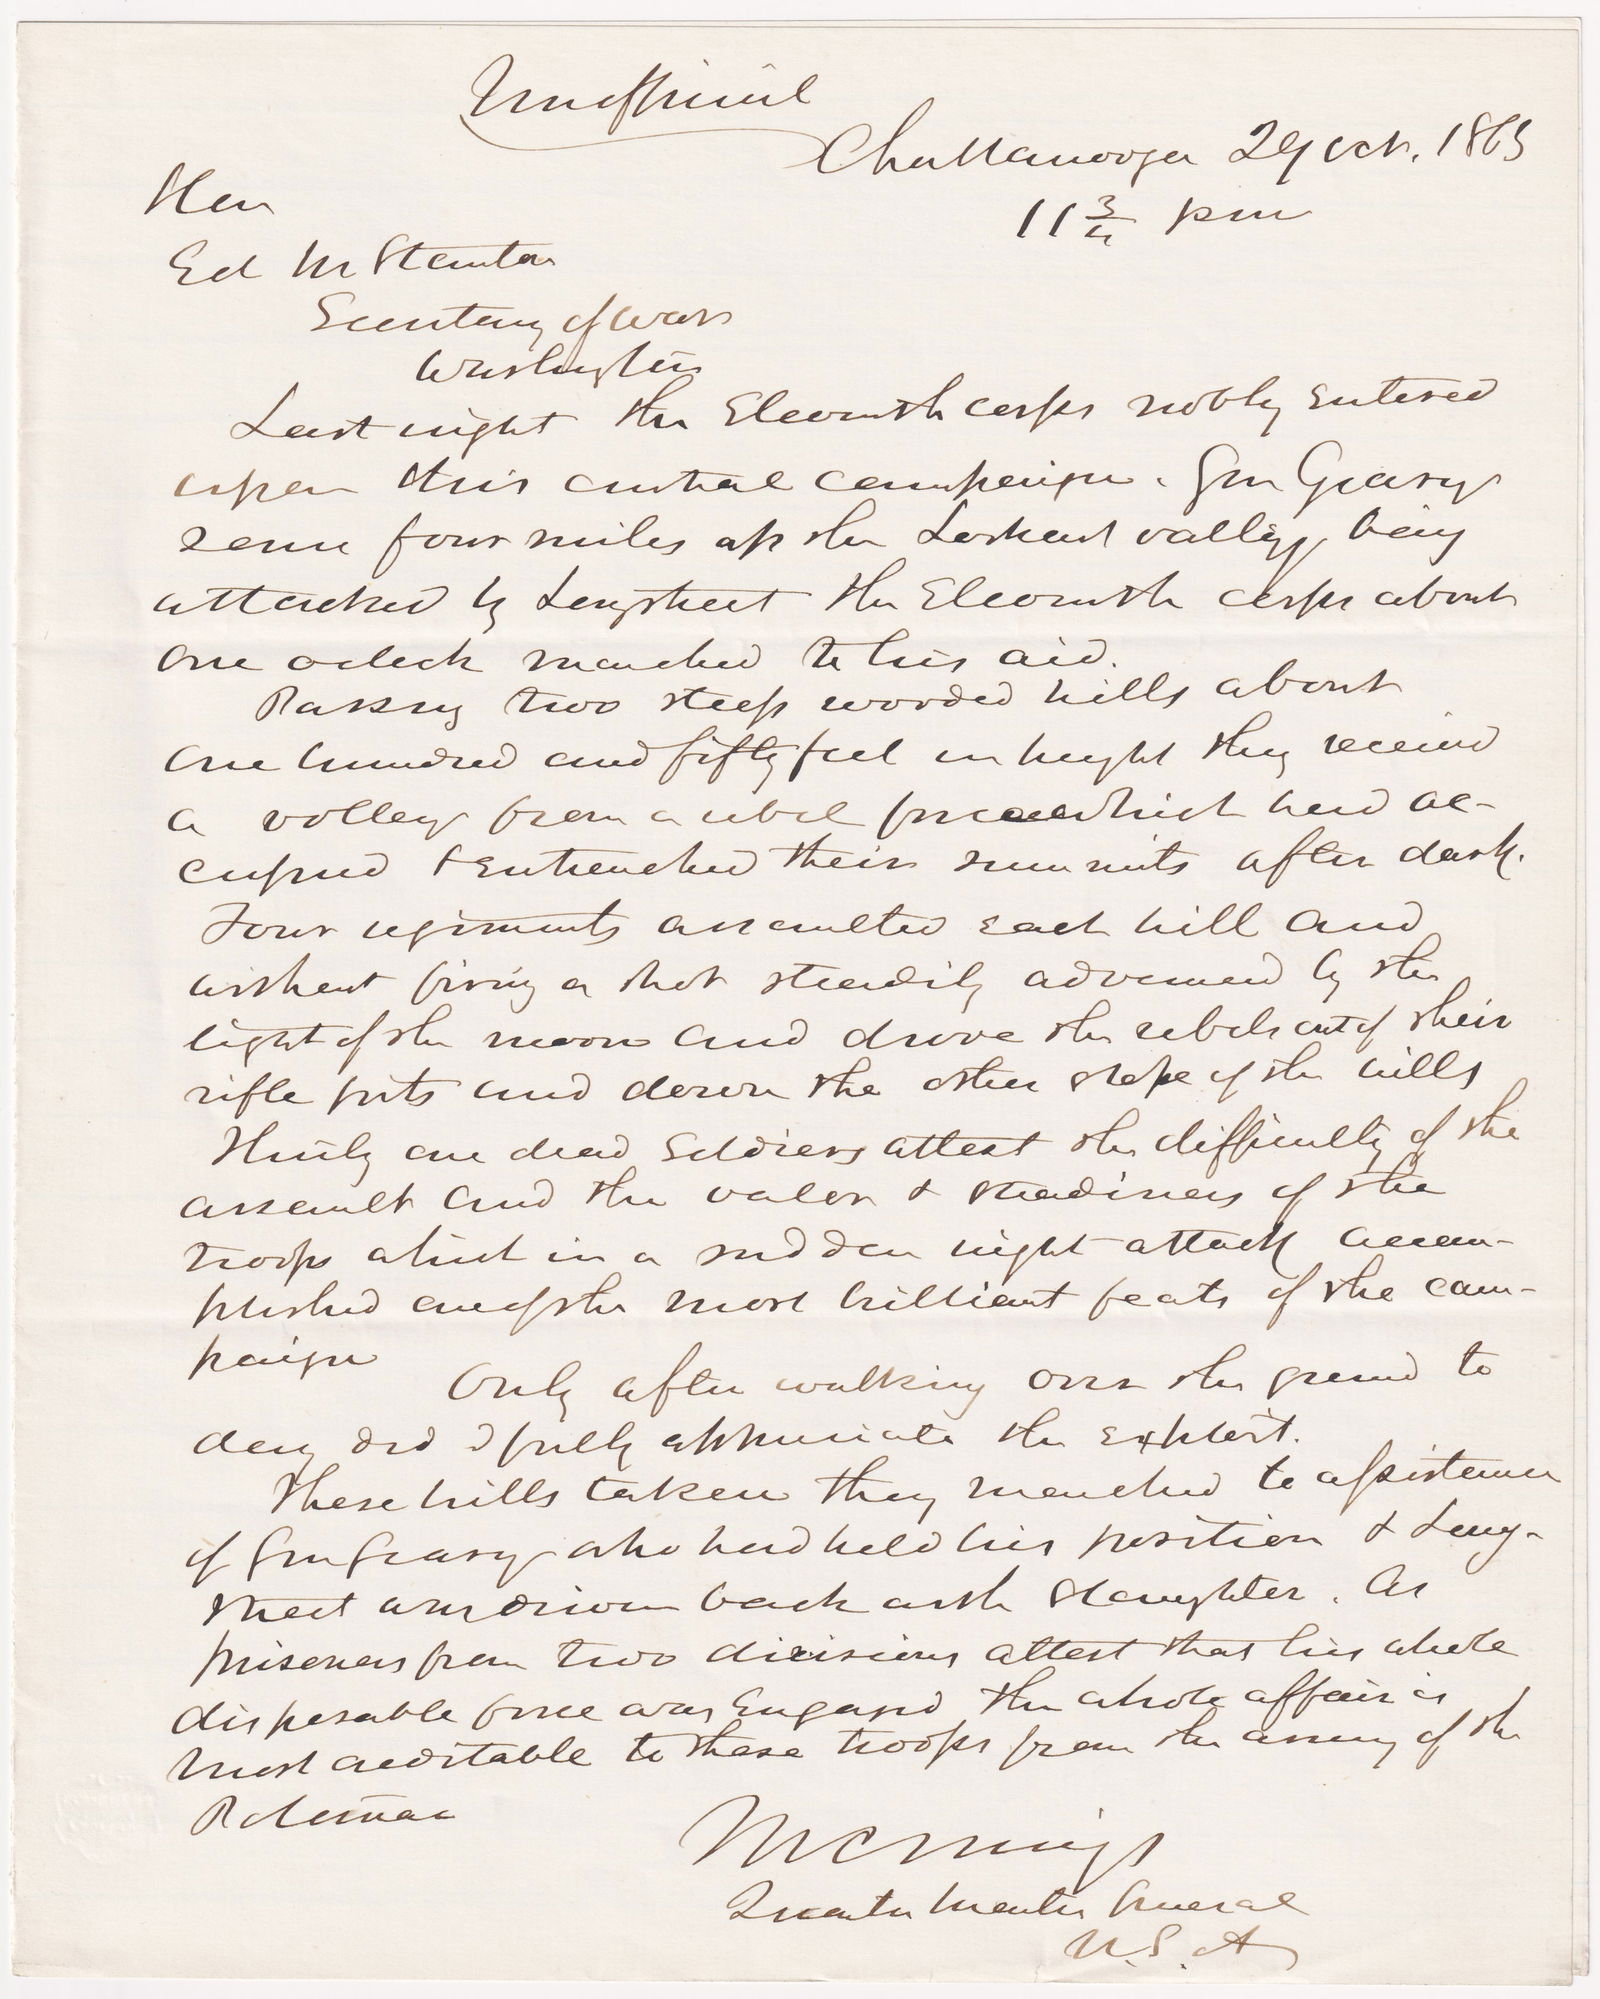 Unofficial
Chattanooga 29 Oct. 1863
11 3/4 pm
Hon
Ed M Stanton
Secretary of War
Washington
Last night the Eleventh corps nobly entered
upon this central campaign. Gen Geary
some four miles up the Lookout valley, being
attacked by Longstreet the Eleventh corps about
one oclock marched to his aid.
Passing two steep wooded hills about
one hundred and fifty feet in height they received
a volley from a rebel force which had oc-
cupied & entrenched their summits after dark.
Four regiments assaulted each hill and
without firing a shot steadily advanced by the
light of the moon and drove the rebels out of their
rifle pits and down the other slope of the hills
Thirty one dead soldiers attest the difficulty of the
assault and the valor & steadiness of the
troops which in a sudden night attack accom-
plished one of the most brilliant feats of the cam-
paign
Only after walking over the ground to
day did I fully appreciate the exploit.
These hills taken they marched to assistance
of Gen Geary who had held his position & Long-
street was driven back with slaughter. As
prisoners from two divisions attest that his whole
disposable force was engaged the whole affair is
most creditable to these troops from the army of the
Potomac
M C Meigs
Quarter Master General
U.S.A